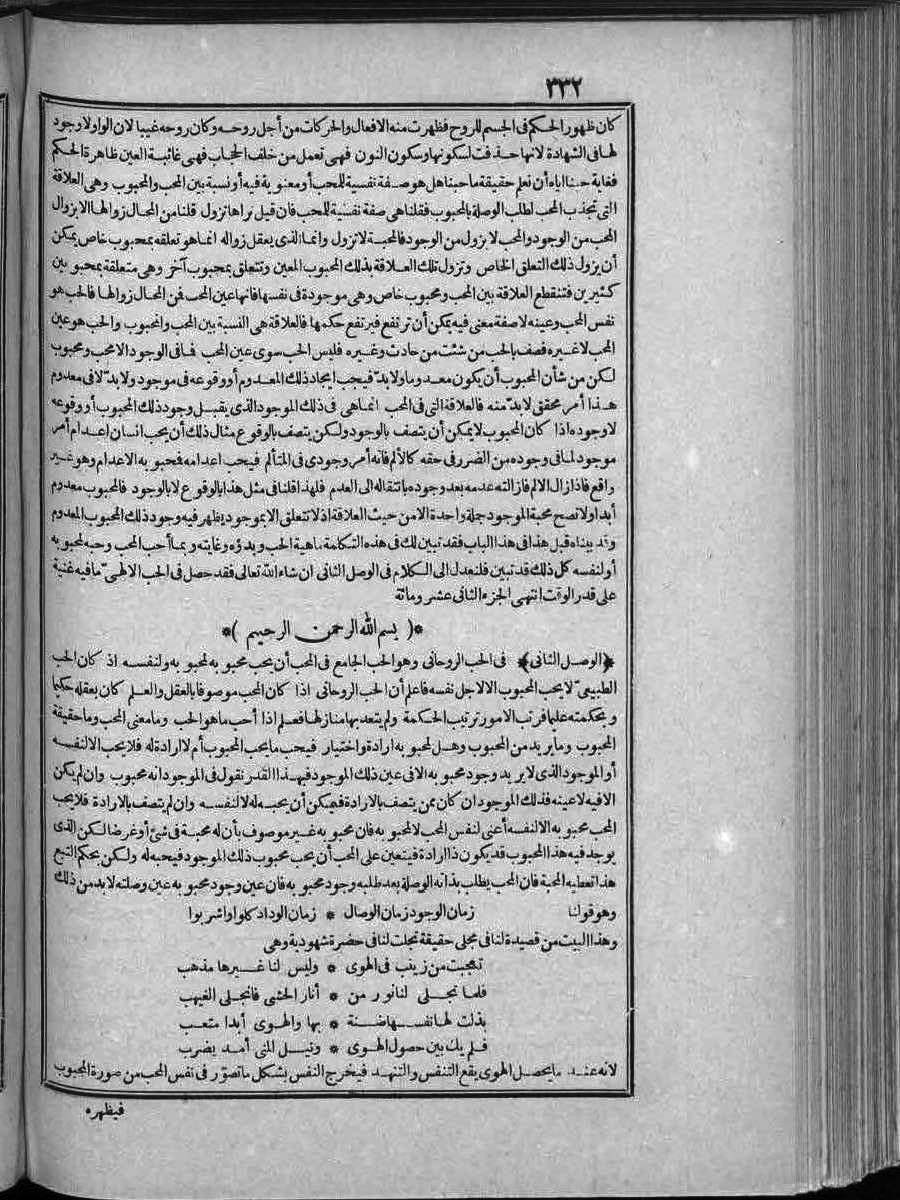 ٣٣٢
كان ظهور الحكم فى الجسم للروح فظهرت منه الافعال والحركات من أجل روحه وكان روحه غيبا لان الواو لا وجود
لها فى الشهادة لانها حذفت لسكونها وسكون النون فهى تعمل من خلف الحجاب فهى غائبة العين ظاهرة الحكم
فغاية حبنا اياه أن نعلم حقيقة ما حبنا هل هو صفة نفسية للمحب أو معنوية فيه أو نسبة بين المحب والمحبوب وهى العلاقة
التى تجذب المحب لطلب الوصلة بالمحبوب فقلنا هى صفة نفسية للمحب فان قيل نراها تزول قلنا من المحال زوالها الا بزوال
المحب من الوجود والمحب لا يزول من الوجود فالمحبة لا تزول وانما الذى يعقل زواله انما هو تعلقه بمحبوب خاص يمكن
أن يزول ذلك التعلق الخاص وتزول تلك العلاقة بذلك المحبوب المعين وتتعلق بمحبوب آخر وهى متعلقة بمحبو بين
كثيرين فتنقطع العلاقة بين المحب ومحبوب خاص وهى موجودة فى نفسها فانها عين المحب فن المحال زوالها فالحب هو
نفس المحب وعينه لا صفة معنى فيه يمكن أن ترتفع فيرتفع حكمها فالعلاقة هى النسبة بين المحب والمحبوب والحب هو عين
المحب لا غيره فصف بالحب من شئت من حادث وغيره فليس الحب سوى عين المحب فما فى الوجود الا محب ومحبوب
لكن من شأن المحبوب أن يكون معدوما ولا بدّ فيجب ايجاد ذلك المعدوم أو وقوعه فى موجود ولا بدّ لا فى معدوم
هذا أمر محقق لا بدّ منه فالعلاقة التى فى المحب انما هى فى ذلك الموجود الذى يقبل وجود ذلك المحبوب أو وقوعه
لا وجوده اذا كان المحبوب لا يمكن أن يتصف بالوجود ولكن يتصف بالوقوع مثال ذلك أن يحب انسان اعدام أمر
موجود لما فى وجوده من الضرر فى حقه كالألم فانه أمر وجودى فى المتألم فيحب اعدامه فمحبو به الاعدام وهو غير
واقع فاذا زال الالم فازالته عدمه بعد وجوده بانتقاله الى العدم فلهذا قلنا فى مثل هذا بالوقوع لا بالوجود فالمحبوب معدوم
أبدا ولا تصح محبة الموجود جملة واحدة الا من حيث العلاقة اذ لا تتعلق الا بموجود يظهر فيه وجود ذلك المحبوب المعدوم
وقد بيناه قبل هذا فى هذا الباب فقد تبين لك فى هذه التكلمة ماهية الحب وبدؤه وغايته وبما أحب المحب وحبه لمحبو به
أو لنفسه كل ذلك قد تبين فلنعدل الى الكلام فى الوصل الثانى ان شاء الله تعالى فقد حصل فى الحب الالهىّ ما فيه غنية
على قدر الوقت انتهى الجزء الثانى عشر ومائة
*( بسم الله الرحمن الرحيم )*
﴿الوصل الثانى﴾ فى الحب الروحانى وهو الحب الجامع فى المحب أن يحب محبو به لمحبو به ولنفسه اذ كان الحب
الطبيعىّ لا يحب المحبوب الا لاجل نفسه فاعلم أن الحب الروحانى اذا كان المحب موصوفا بالعقل والعلم كان بعقله حكيما
وبحكمته عليما فرتب الامور ترتيب الحكمة ولم يتعد بها منازلها فعلم اذا أحب ما هو الحب وما معنى المحب وما حقيقة
المحبوب وما يريد من المحبوب وهل لمحبو به ارادة واختيار فيحب ما يحب المحبوب أم لا ارادة له فلا يحب الا لنفسه
أو الموجود الذى لا يريد وجود محبو به الا فى عين ذلك الموجود فبهذا القدر نقول فى الموجود انه محبوب وان لم يكن
الا فيه لا عينه فذلك الموجود ان كان ممن يتصف بالارادة فيمكن أن يحبه له لا لنفسه وان لم يتصف بالارادة فلا يحب
المحب محبو به الا لنفسه أعنى لنفس المحب لا لمحبو به فان محبو به غير موصوف بأن له محبة فى شئ أو غرضا لكن الذى
يوجد فيه هذا المحبوب قد يكون ذا ارادة فيتعين على المحب أن يحب محبوب ذلك الموجود فيحبه له ولكن بحكم التبع
هذا تعطيه المحبة فان المحب يطلب بذاته الوصلة بعد طلبه وجود محبو به فان عين وجود محبو به عين وصلته لا بد من ذلك
وهو قولنا زمان الوجود زمان الوصال * زمان الوداد كلوا واشربوا
وهذا البيت من قصيدة لنا فى مجلى حقيقة تجلت لنا فى حضرة شهودية وهى
تعجبت من زينب فى الهوى * وليس لنا غيرها مذهب
فلما تجلى لنا نور من * أنار الحشى فانجلى الغيهب
بذلت لها نفسها ضنة * بها والهوى أبدا متعب
فلم يك بين حصول الهوى * ونيل المنى أمد يضرب
لانه عند ما يحصل الهوى يقع التنفس والتنهد فيخرج النفس بشكل ما تصوّر فى نفس المحب من صورة المحبوب
فيظهره